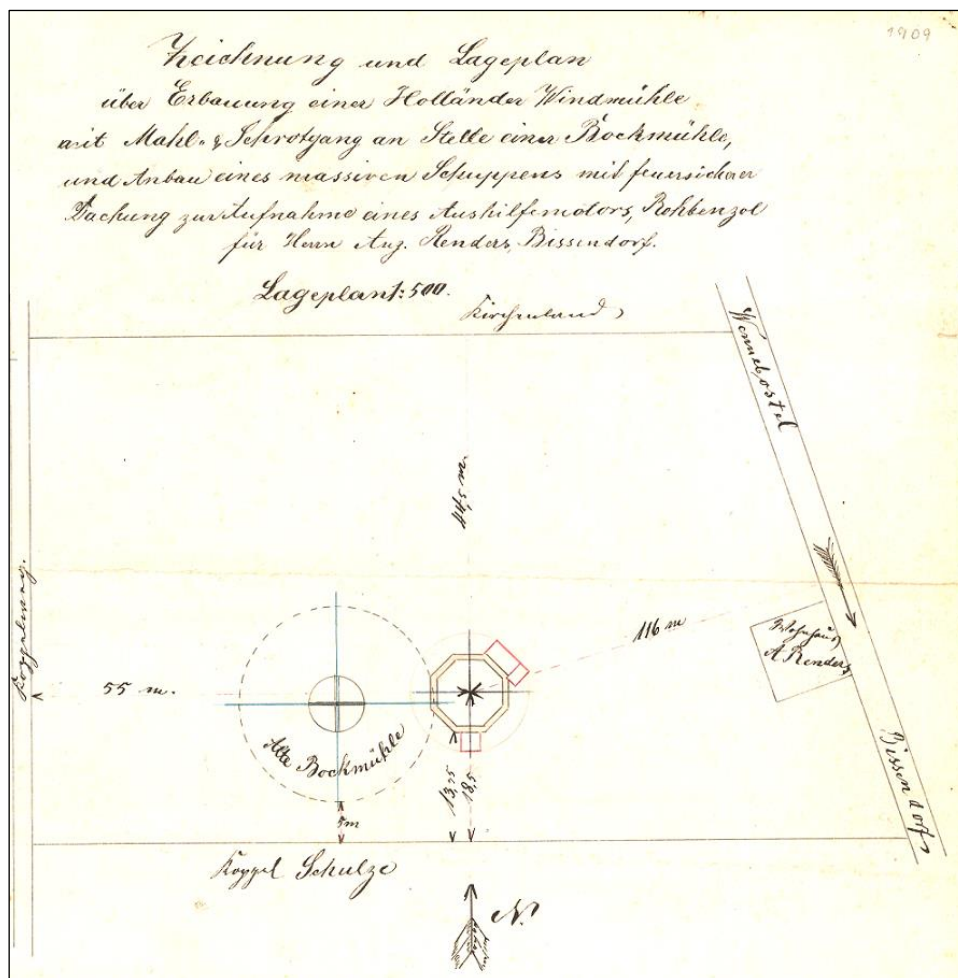 1909
Zeichnung und Lageplan
über Erbauung einer Holländer Windmühle
mit Mahl- & Schrotgang an Stelle einer Bockmühle,
und Anbau eines massiven Schuppens mit feuersicherer
Dachung zur Aufnahme eines Aushilfemotors, Rohbenzol
für Herrn Aug. Renders, Bissendorf.
Lageplan 1:500.
Kirchenland
Wennebostel
44,5 m.
Koppelweg.
116 m
Wohnhaus
A. Renders
55 m.
Alte Bockmühle
13,25
18,5
5m
Bissendorf
Koppel Schulze
N.